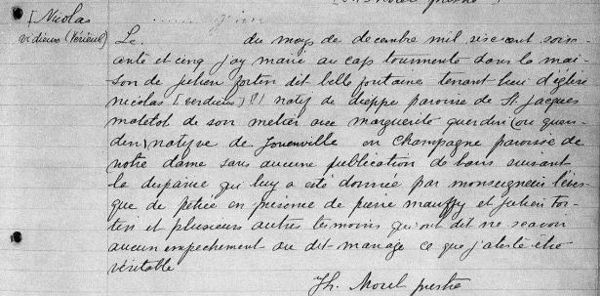 [Nicolas
Le du moys de decembre mil six cent soix-
ante et cinq jay marié au cap tourmente dans la mai-
son de julien fortin dit belle fontaine tenant lieu d'église
nicolas [verdieu] ?] natif de dieppe paroisse de St. jacques
matelot de son metier avec marguerite guerdri (ou guer-
din) natifve de Joinville en Champagne paroisse de
notre dame sans aucune publication de bans suivant
la dispance qui luy a esté donnée par monseigneur l'éves-
que de petrée en présence de pierre mauffy et julien for-
tin et plusieurs autres temoins qui ont dit ne scavoir
aucun empechement au dit mariage ce que j'ateste etre
véritable
Th. Morel prestre